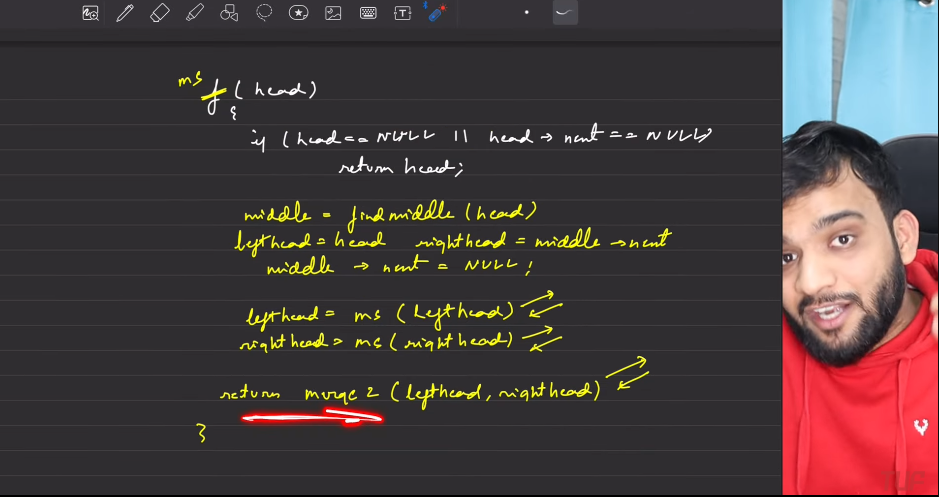 ms f ( head )
{
if ( head == NULL || head → next == NULL )
return head;
middle = findmiddle ( head )
lefthead = head righthead = middle → next
middle → next = NULL ;
lefthead = ms ( lefthead )
righthead = ms ( righthead )
return merge 2 ( lefthead , righthead )
}